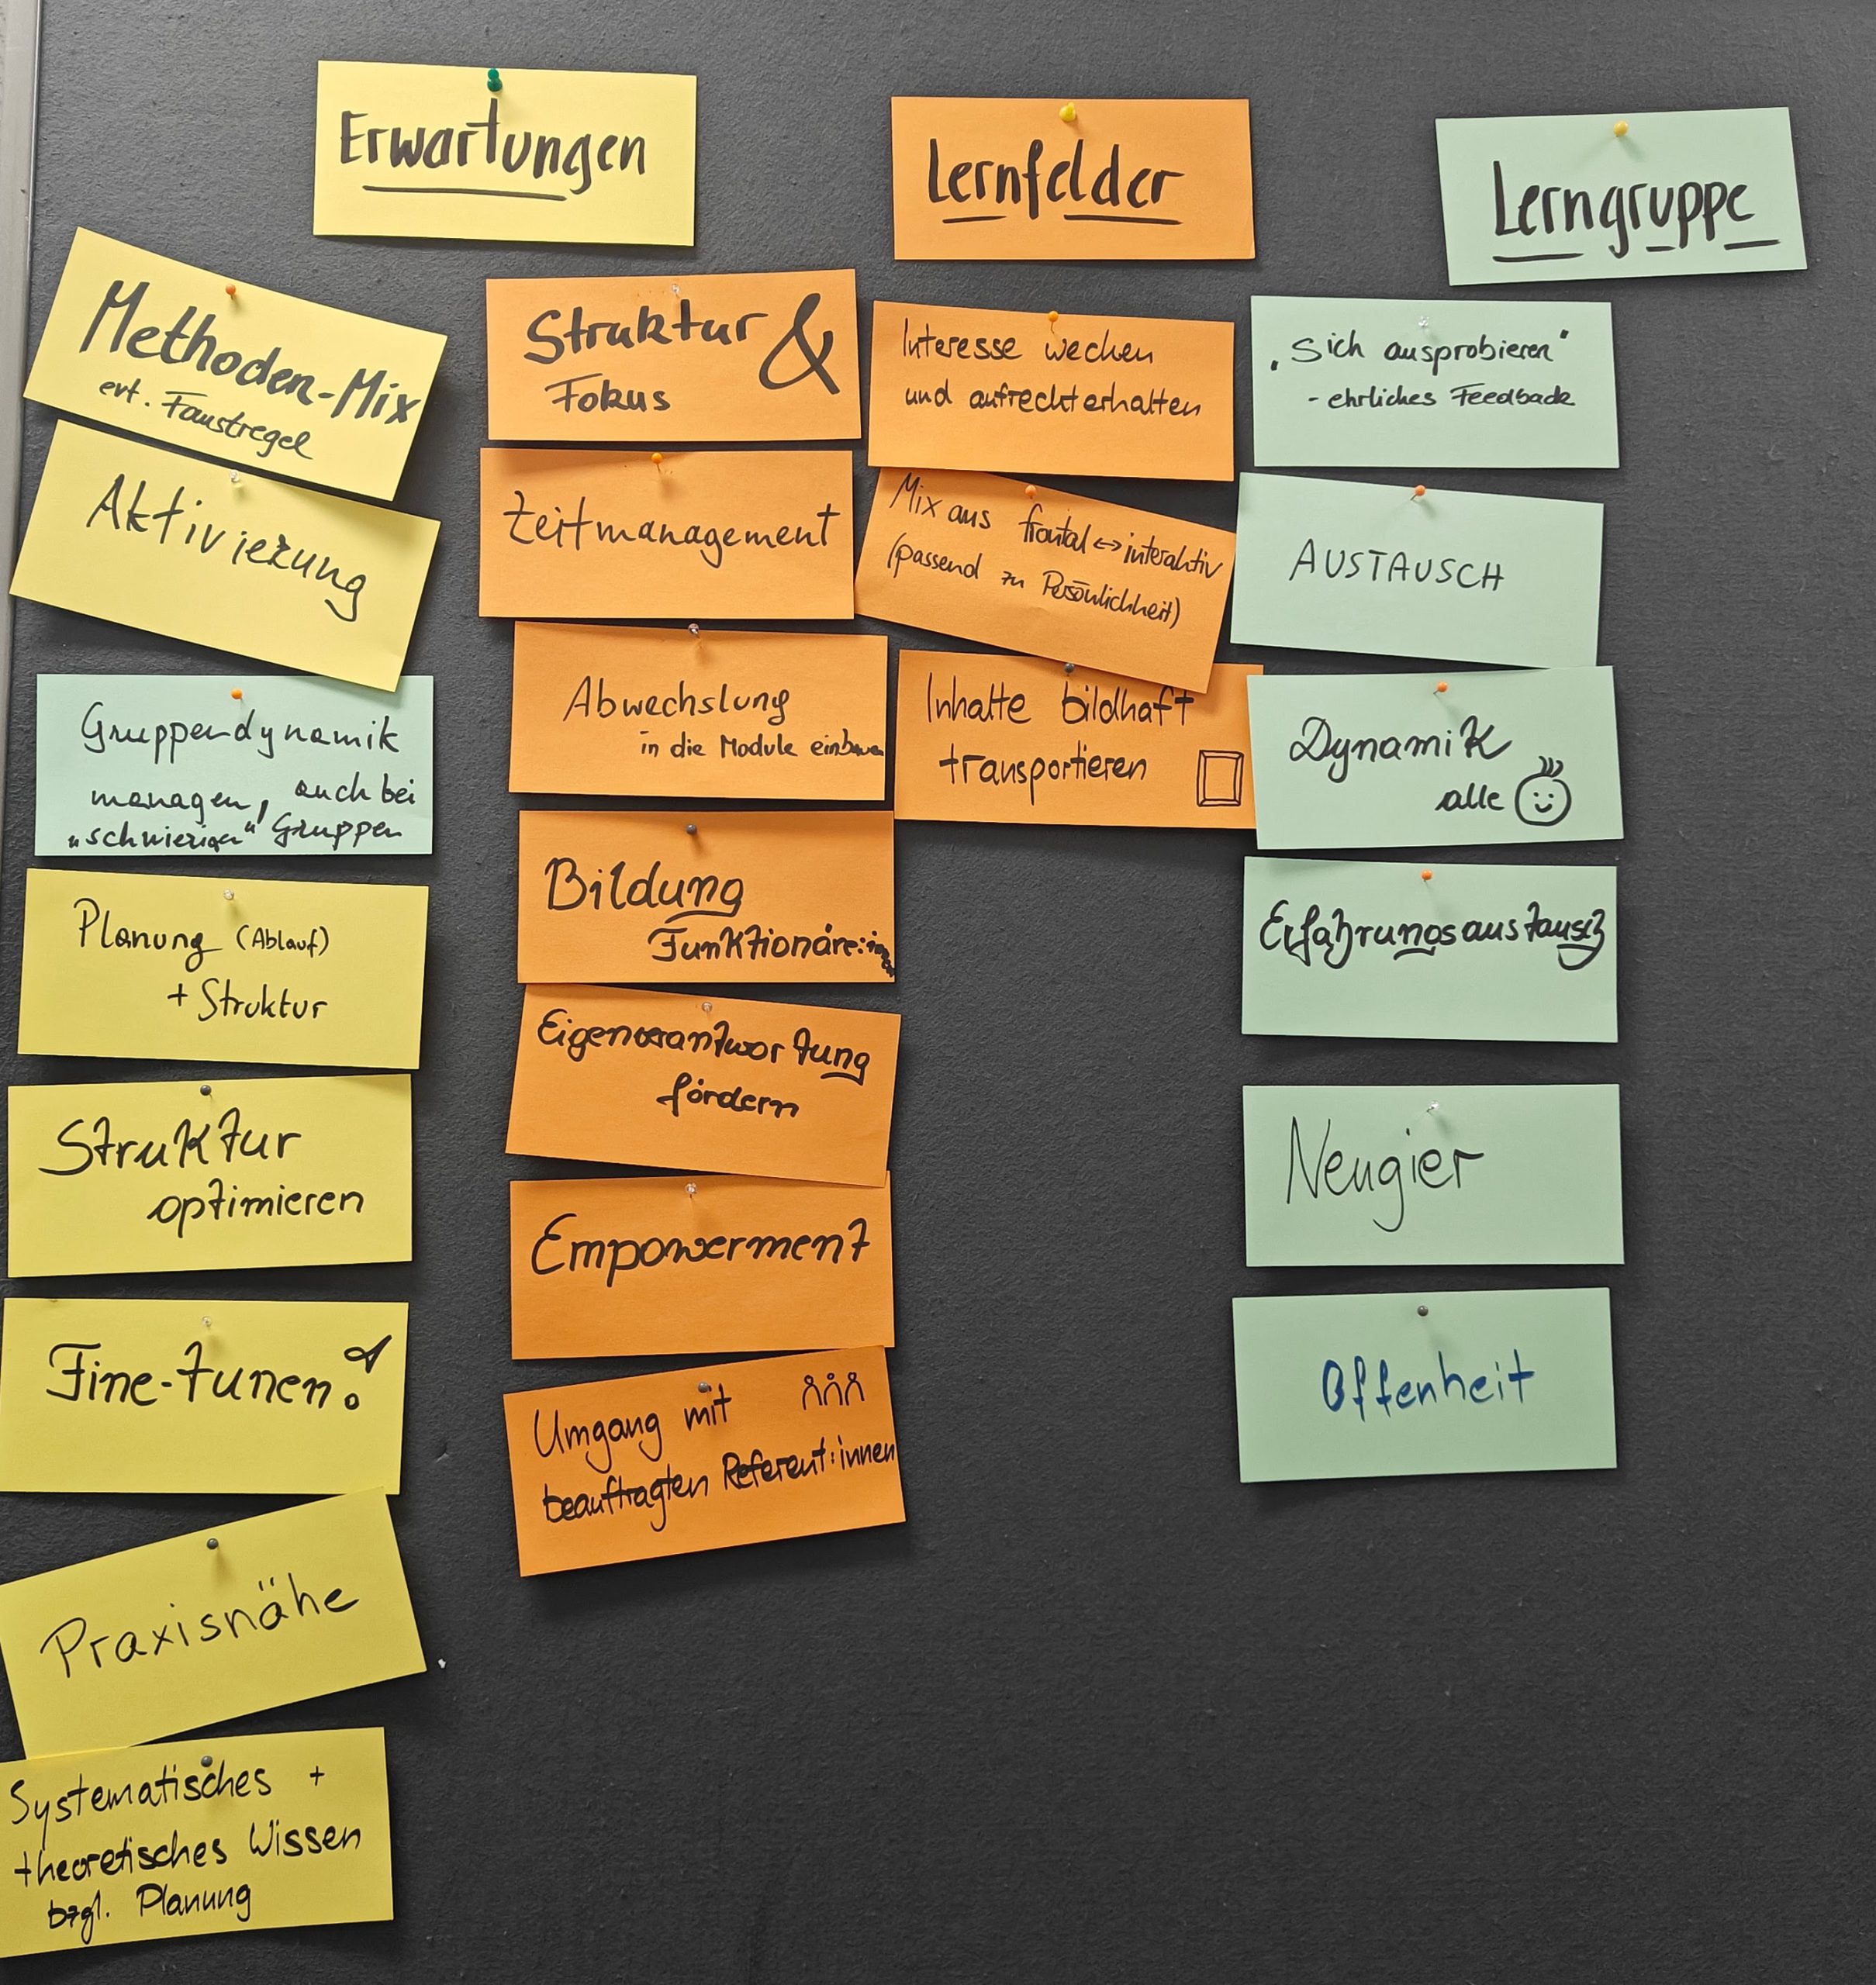 Erwartungen
Methoden-Mix
evt. Faustregel
Aktivierung
Gruppendynamik
managen, auch bei
„schwierigen" Gruppen
Planung (Ablauf)
+ Struktur
Struktur
optimieren
Fine-tunen!
Praxisnähe
Systematisches +
theoretisches Wissen
bzgl. Planung
Lernfelder
Struktur &
Fokus
Zeitmanagement
Abwechslung
in die Module einbauen
Bildung
Funktionäre:innen
Eigenverantwortung
fördern
Empowerment
Umgang mit
beauftragten Referent:innen
Interesse wecken
und aufrechterhalten
Mix aus frontal ↔ interaktiv
(passend zu Persönlichkeit)
Inhalte bildhaft
transportieren
Lerngruppe
„Sich ausprobieren"
- ehrliches Feedback
AUSTAUSCH
Dynamik
alle
Erfahrungsaustausch
Neugier
Offenheit